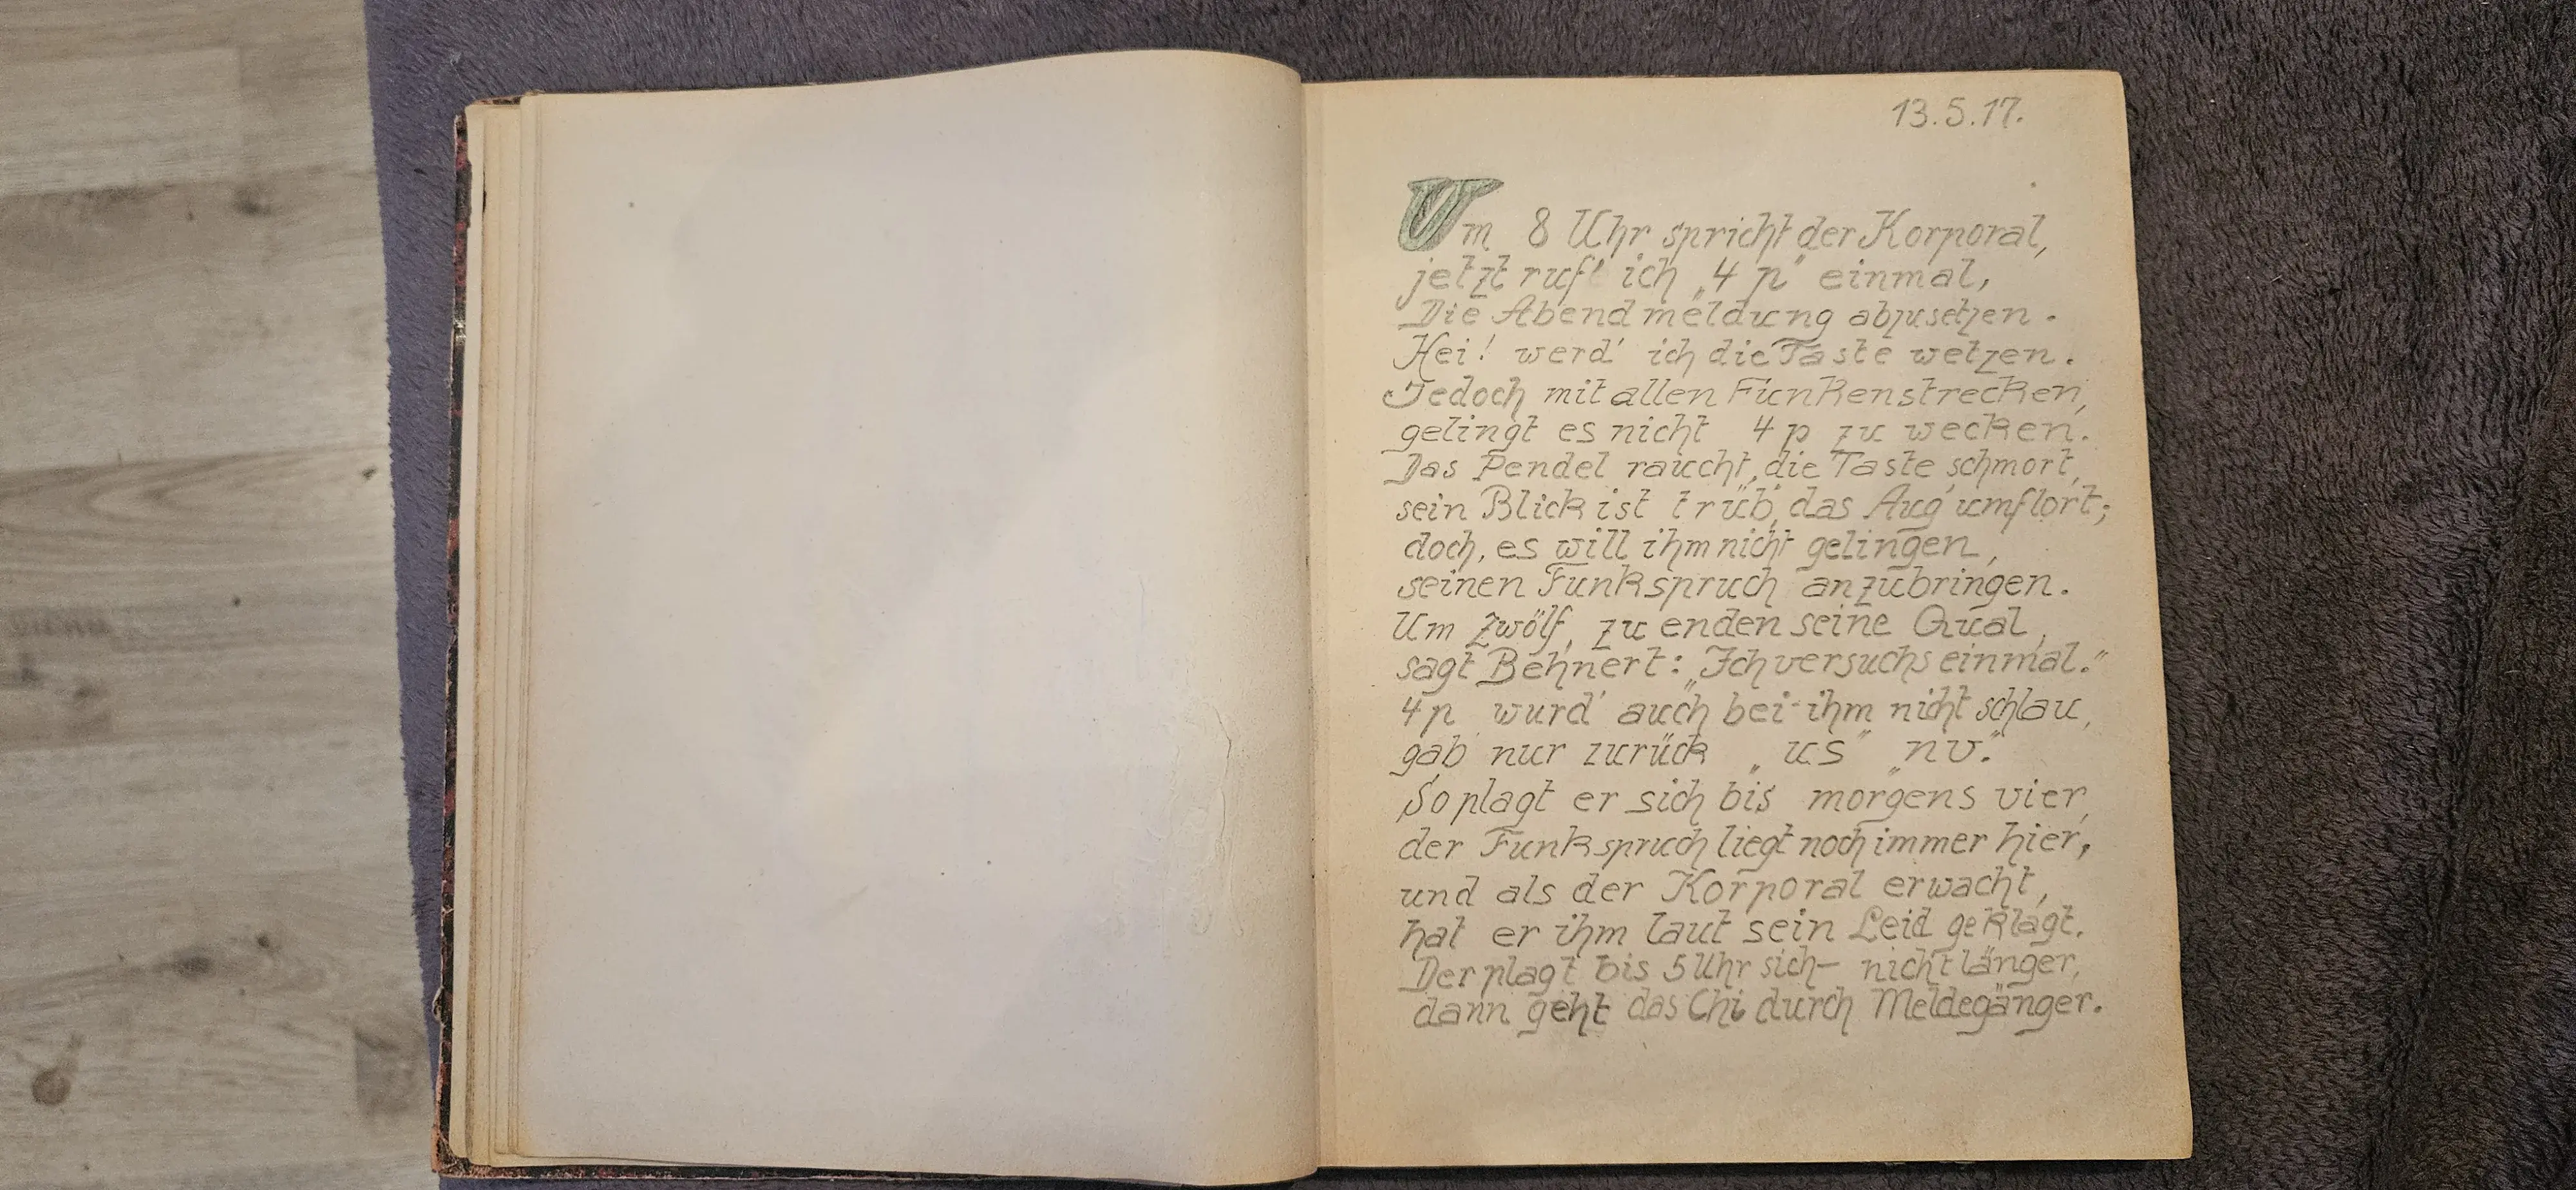 13.5.17.
Um 8 Uhr spricht der Korporal,
jetzt ruf' ich „4 p" einmal,
Die Abendmeldung abzusetzen.
Hei! werd' ich die Taste wetzen.
Jedoch mit allen Funkenstrecken,
gelingt es nicht 4 p zu wecken.
Das Pendel raucht, die Taste schmort,
sein Blick ist trüb, das Aug' umflort;
doch, es will ihm nicht gelingen,
seinen Funkspruch anzubringen.
Um zwölf, zu enden seine Qual,
sagt Behnert: „Ich versuchs einmal."
4 p wurd' auch bei ihm nicht schlau,
gab nur zurück „us" „nv."
So plagt er sich bis morgens vier,
der Funkspruch liegt noch immer hier,
und als der Korporal erwacht,
hat er ihm laut sein Leid geklagt.
Der plagt bis 5 Uhr sich – nicht länger,
dann geht das Chi durch Meldegänger.